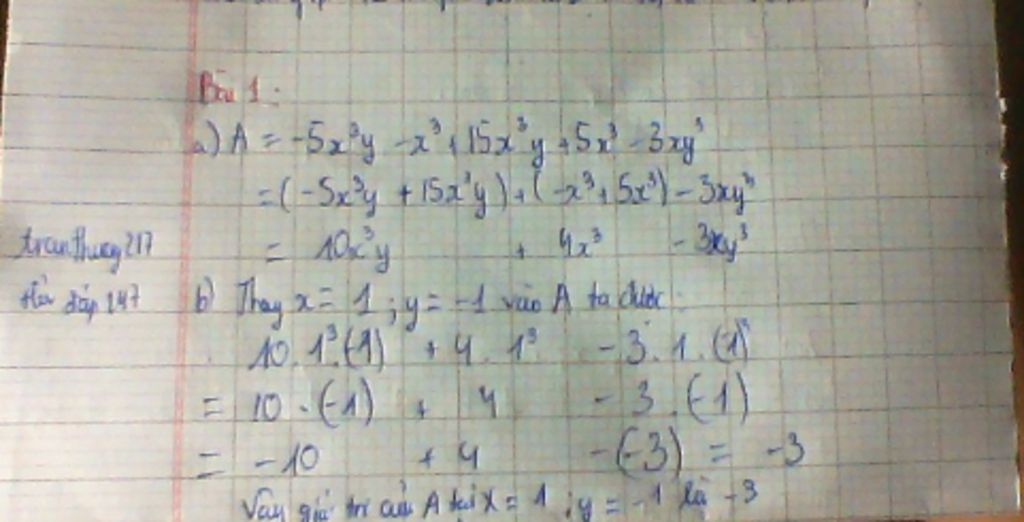 Bài 1:
a) A = -5x³y - x³ + 15x³y + 5x³ - 3xy³
= (-5x³y + 15x³y) + (-x³ + 5x³) - 3xy³
= 10x³y + 4x³ - 3xy³
tranthuong217
Hỏi đáp 247
b) Thay x = 1 ; y = -1 vào A ta được:
10 . 1³.(-1) + 4 . 1³ - 3 . 1 . (-1)³
= 10 . (-1) + 4 - 3 . (-1)
= -10 + 4 - (-3) = -3
Vậy giá trị của A tại x = 1 ; y = -1 là -3